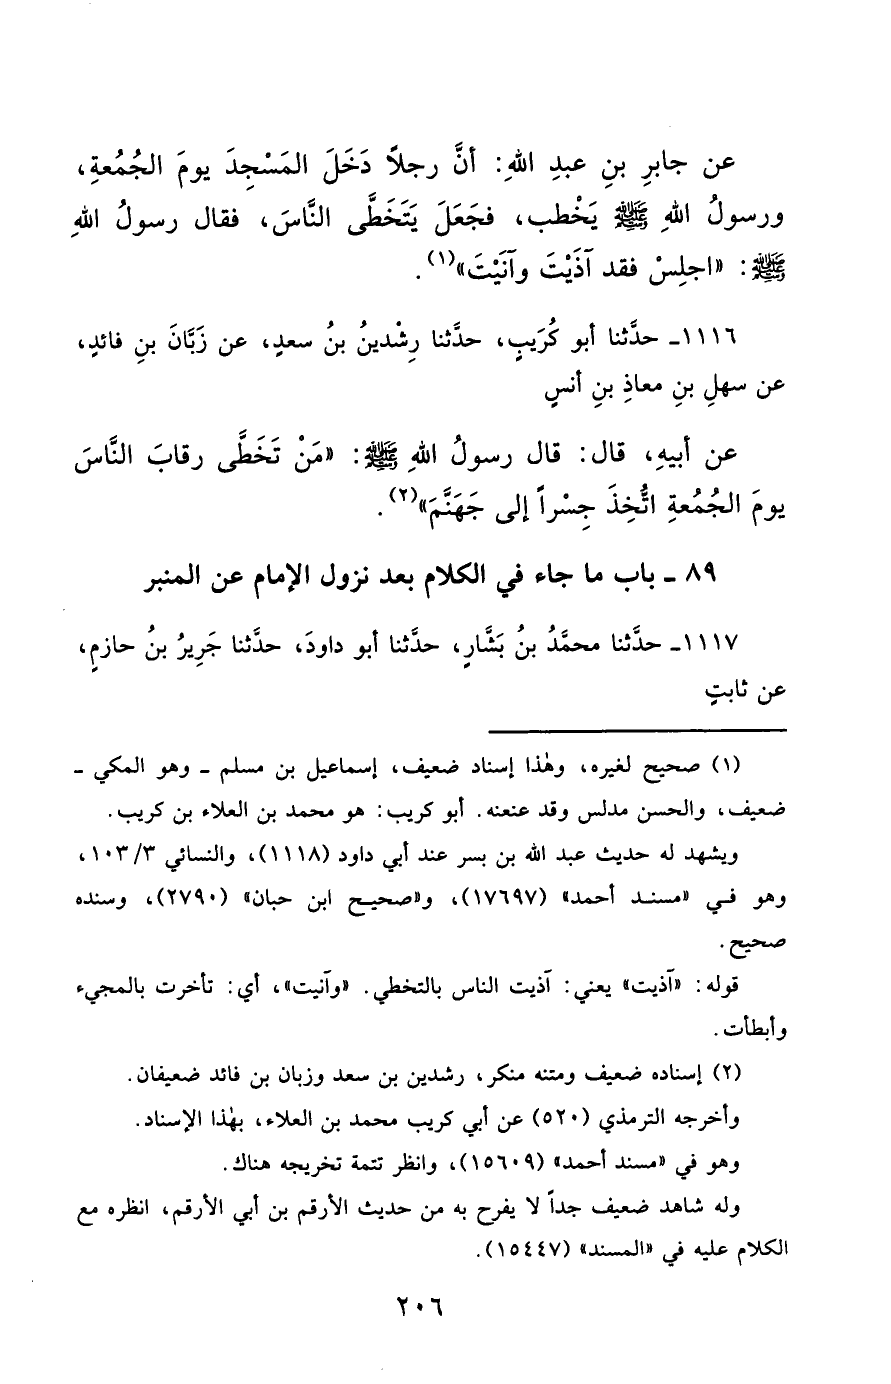 عن جابرِ بنِ عبدِ اللهِ: أنَّ رجلاً دَخَلَ المَسْجِدَ يومَ الجُمُعةِ،
ورسولُ اللهِ ﷺ يَخْطب، فجَعَلَ يَتَخَطَّى النَّاسَ، فقال رسولُ اللهِ
ﷺ: «اجلِسْ فقد آذَيْتَ وآنَيْتَ»(١).
١١١٦ـ حدَّثنا أبو كُرَيبٍ، حدَّثنا رِشْدينُ بنُ سعدٍ، عن زَبَّانَ بنِ فائدٍ،
عن سهلِ بنِ معاذِ بنِ أنسٍ
عن أبيهِ، قال: قال رسولُ اللهِ ﷺ: «مَنْ تَخَطَّى رقابَ النَّاسَ
يومَ الجُمُعةِ اتُّخِذَ جِسْراً إلى جَهَنَّمَ»(٢).
٨٩ ـ باب ما جاء في الكلام بعد نزول الإمام عن المنبر
١١١٧ـ حدَّثنا محمَّدُ بنُ بَشَّارٍ، حدَّثنا أبو داودَ، حدَّثنا جَرِيرُ بنُ حازمٍ،
عن ثابتٍ
(١) صحيح لغيره، وهٰذا إسناد ضعيف، إسماعيل بن مسلم ـ وهو المكي ـ
ضعيف، والحسن مدلس وقد عنعنه. أبو كريب: هو محمد بن العلاء بن كريب.
ويشهد له حديث عبد الله بن بسر عند أبي داود (١١١٨)، والنسائي ١٠٣/٣،
وهو في «مسند أحمد» (١٧٦٩٧)، و«صحيح ابن حبان» (٢٧٩٠)، وسنده
صحيح.
قوله: «آذيت» يعني: آذيت الناس بالتخطي. «وآنيت»، أي: تأخرت بالمجيء
وأبطأت.
(٢) إسناده ضعيف ومتنه منكر، رشدين بن سعد وزبان بن فائد ضعيفان.
وأخرجه الترمذي (٥٢٠) عن أبي كريب محمد بن العلاء، بهٰذا الإسناد.
وهو في «مسند أحمد» (١٥٦٠٩)، وانظر تتمة تخريجه هناك.
وله شاهد ضعيف جداً لا يفرح به من حديث الأرقم بن أبي الأرقم، انظره مع
الكلام عليه في «المسند» (١٥٤٤٧).
٢٠٦